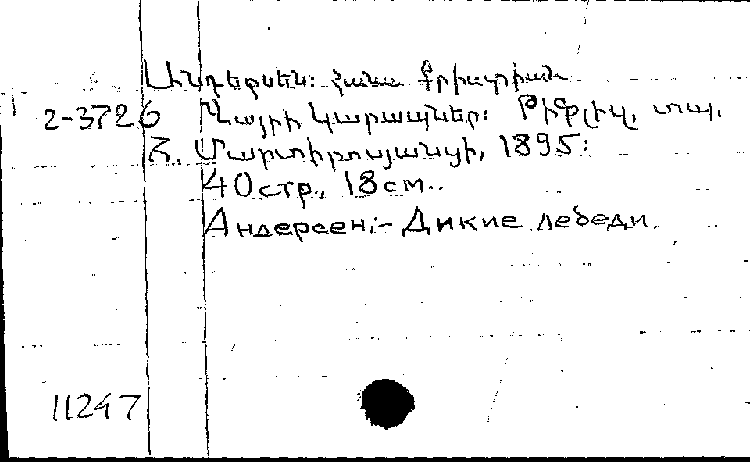 Անդերսեն: Հանս Քրիստիան
2-3726 Վայրի կարապներ: Թիֆլիս, տպ.
Մարտիրոսյանցի, 1895:
40 стр., 18 см..
Андерсен:- Дикие лебеди.
11247